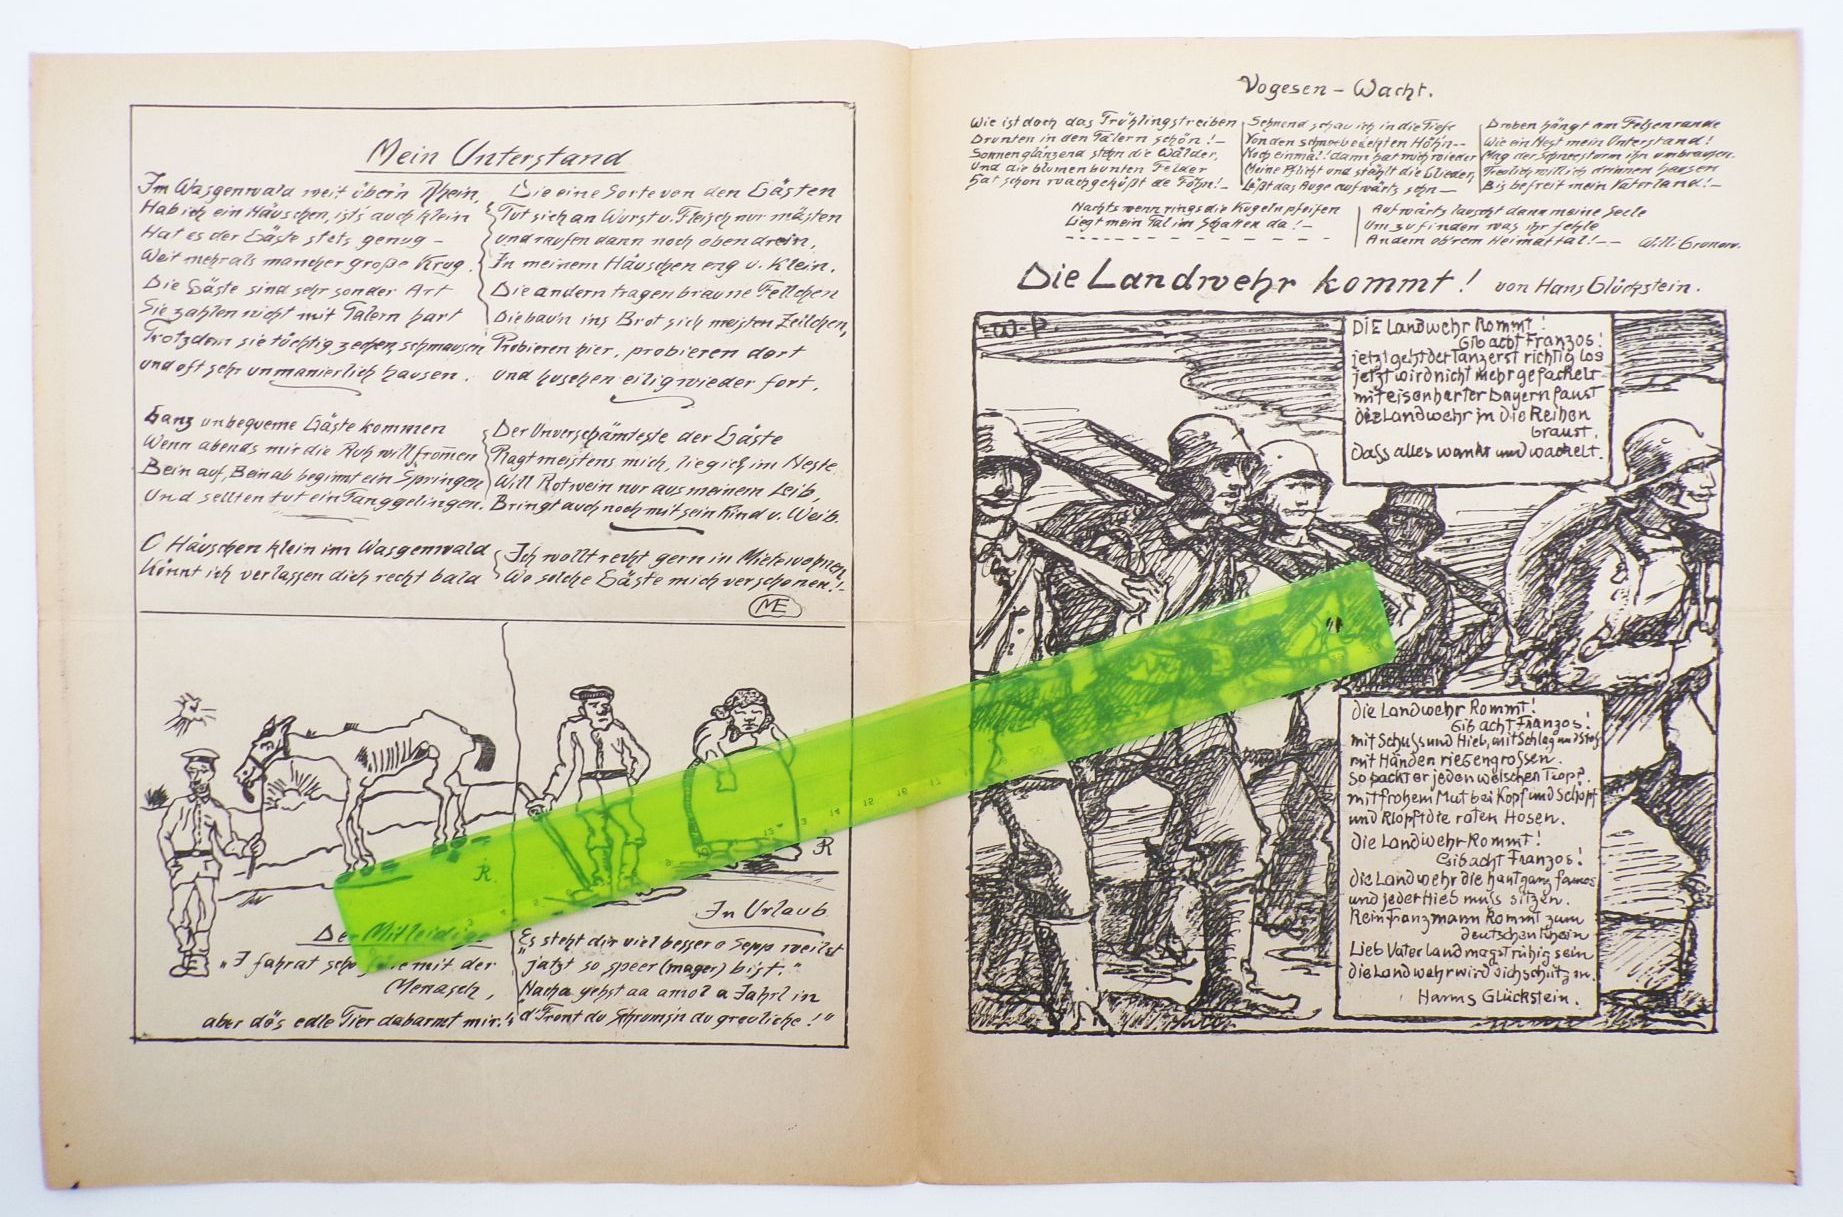 Mein Unterstand
Im Wasgenwald weit über'n Rhein,
Hab ich ein Häuschen, ists auch klein
Hat es der Gäste stets genug –
Weit mehr als mancher große Krug.
Die Gäste sind sehr sonder Art
Sie zahlen nicht mit Talern hart
Trotzdem sie tüchtig zechen, schmausen
und oft sehr unmanierlich hausen.
Die eine Sorte von den Gästen
Tut sich an Wurst u. Fleisch nur mästen
und raufen dann noch obendrein,
In meinem Häuschen eng u. klein.
Die andern tragen braune Fellchen
Die bau'n ins Brot sich meisten Zellchen,
Probieren hier, probieren dort
und huschen eilig wieder fort.
Ganz unbequeme Gäste kommen
Wenn abends mir die Ruh will from̄en
Bein auf, Bein ab beginnt ein Springen
Und selten tut ein Fang gelingen.
Der Unverschämteste der Gäste
Plagt meistens mich, lieg ich im Neste
Will Rotwein nur aus meinem Leib,
Bringt auch noch mit sein Kind u. Weib.
O Häuschen klein im Wasgenwald
Könnt ich verlassen dich recht bald
Ich wollt recht gern in Miete wohnen
Wo solche Gäste mich verschonen!–
ME
R.
Der Mitleidige
"I fahrat scho mit der
Menasch,
aber dös edle Tier dabarmt mir."
R
In Urlaub
"Es steht dir viel besser o Sepp weilst
jatzt so speer (mager) bist."
"Nacha gehst aa amol a Jahrl in
d'Front du Schrumsn du greuliche!"
Vogesen – Wacht.
Wie ist doch das Frühlingstreiben
Drunten in den Tälern schön!–
Sonnenglänzend stehn die Wälder,
Und die blumenbunten Felder
Hat schon wachgeküßt de Föhn!–
Sehnend schau ich in die Tiefe
Von den schneebedeckten Höhn--
Noch einmal! dann hat mich wieder
Meine Pflicht und stählt die Glieder,
Läßt das Auge aufwärts sehn—
Droben hängt am Felsenrande
Wie ein Nest mein Unterstand!
Mag der Schneesturm ihn umbrausen.
Treulich will ich drinnen hausen
Bis befreit mein Vaterland!–
Nachts wenn rings die Kugeln pfeifen
Liegt mein Tal im Schatten da!–
Aufwärts lauscht dann meine Seele
Um zu finden was ihr fehle
Andern ob'rem Heimattal!–– Willi Gronow.
Die Landwehr kommt! von Hans Glückstein.
W-P.
Die Landwehr kommt!
Gib acht Franzos!
jetzt geht der Tanz erst richtig los
jetzt wird nicht mehr gefackelt
mit eisenharter Bayernfaust
die Landwehr in die Reihen
braust.
Dass alles wankt und wackelt.
Die Landwehr kommt!
Gib acht Franzos!
mit Schuss und Hieb, mit Schlag und Stoß
mit Händen riesengrossen.
So packt er jeden welschen Tropf.
mit frohem Mut bei Kopf und Schopf
und klopft die roten Hosen.
Die Landwehr kommt!
Gib acht Franzos!
die Landwehr die haut ganz famos
und jeder Hieb muss sitzen.
Kein Franzmann kommt zum
deutschen Rhein
Lieb Vaterland magst ruhig sein
die Landwehr wird dich schützen.
Hanns Glückstein.